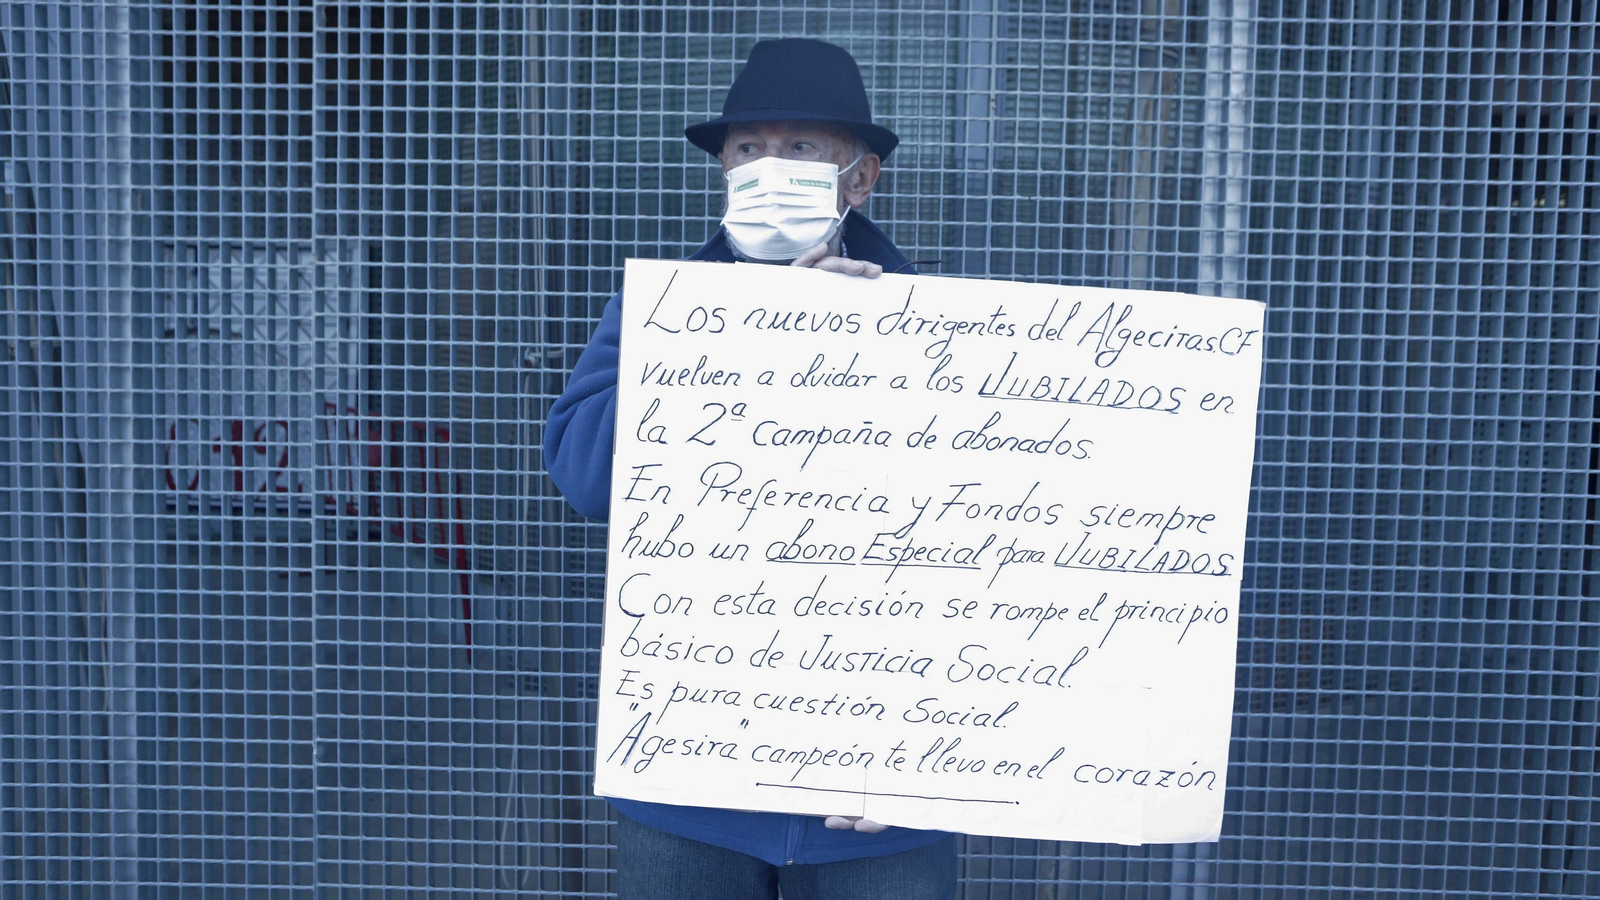 Los nuevos dirigentes del Algeciras.CF
vuelven a olvidar a los JUBILADOS en
la 2ª campaña de abonados.
En Preferencia y Fondos siempre
hubo un abono Especial para JUBILADOS
Con esta decisión se rompe el principio
básico de Justicia Social.
Es pura cuestión Social.
"Agesira" campeón te llevo en el corazón